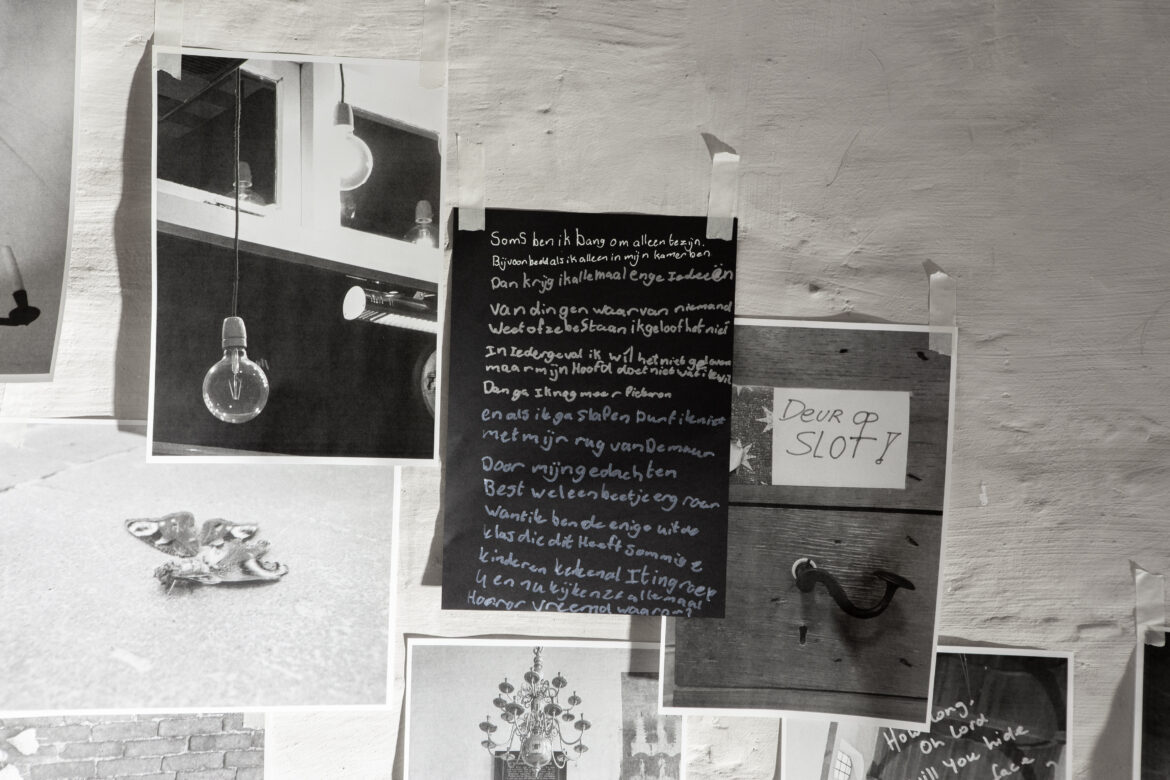 Soms ben ik bang om alleen te zijn.
Bijvoorbeeld als ik alleen in mijn kamer ben
Dan krijg ik allemaal enge Iedeeën
van dingen waarvan niemand
weet of ze bestaan ik geloof het niet
In Iedergeval ik wil het niet geloven
maar mijn Hoofd doet niet wat ik wil
Dan ga Ik nog meer Piekeren
en als ik ga slapen Durf ik niet
met mijn rug van De muur
Door mijn gedachten
Best wel een beetje erg
want ik ben de enige uit de
klas die dit Heeft sommige
kinderen keken al It in groep
4 en nu kijken ze allemaal
Horror vreemd waarom?
DEUR OP
SLOT!
How long,
Oh Lord
will you hide
face